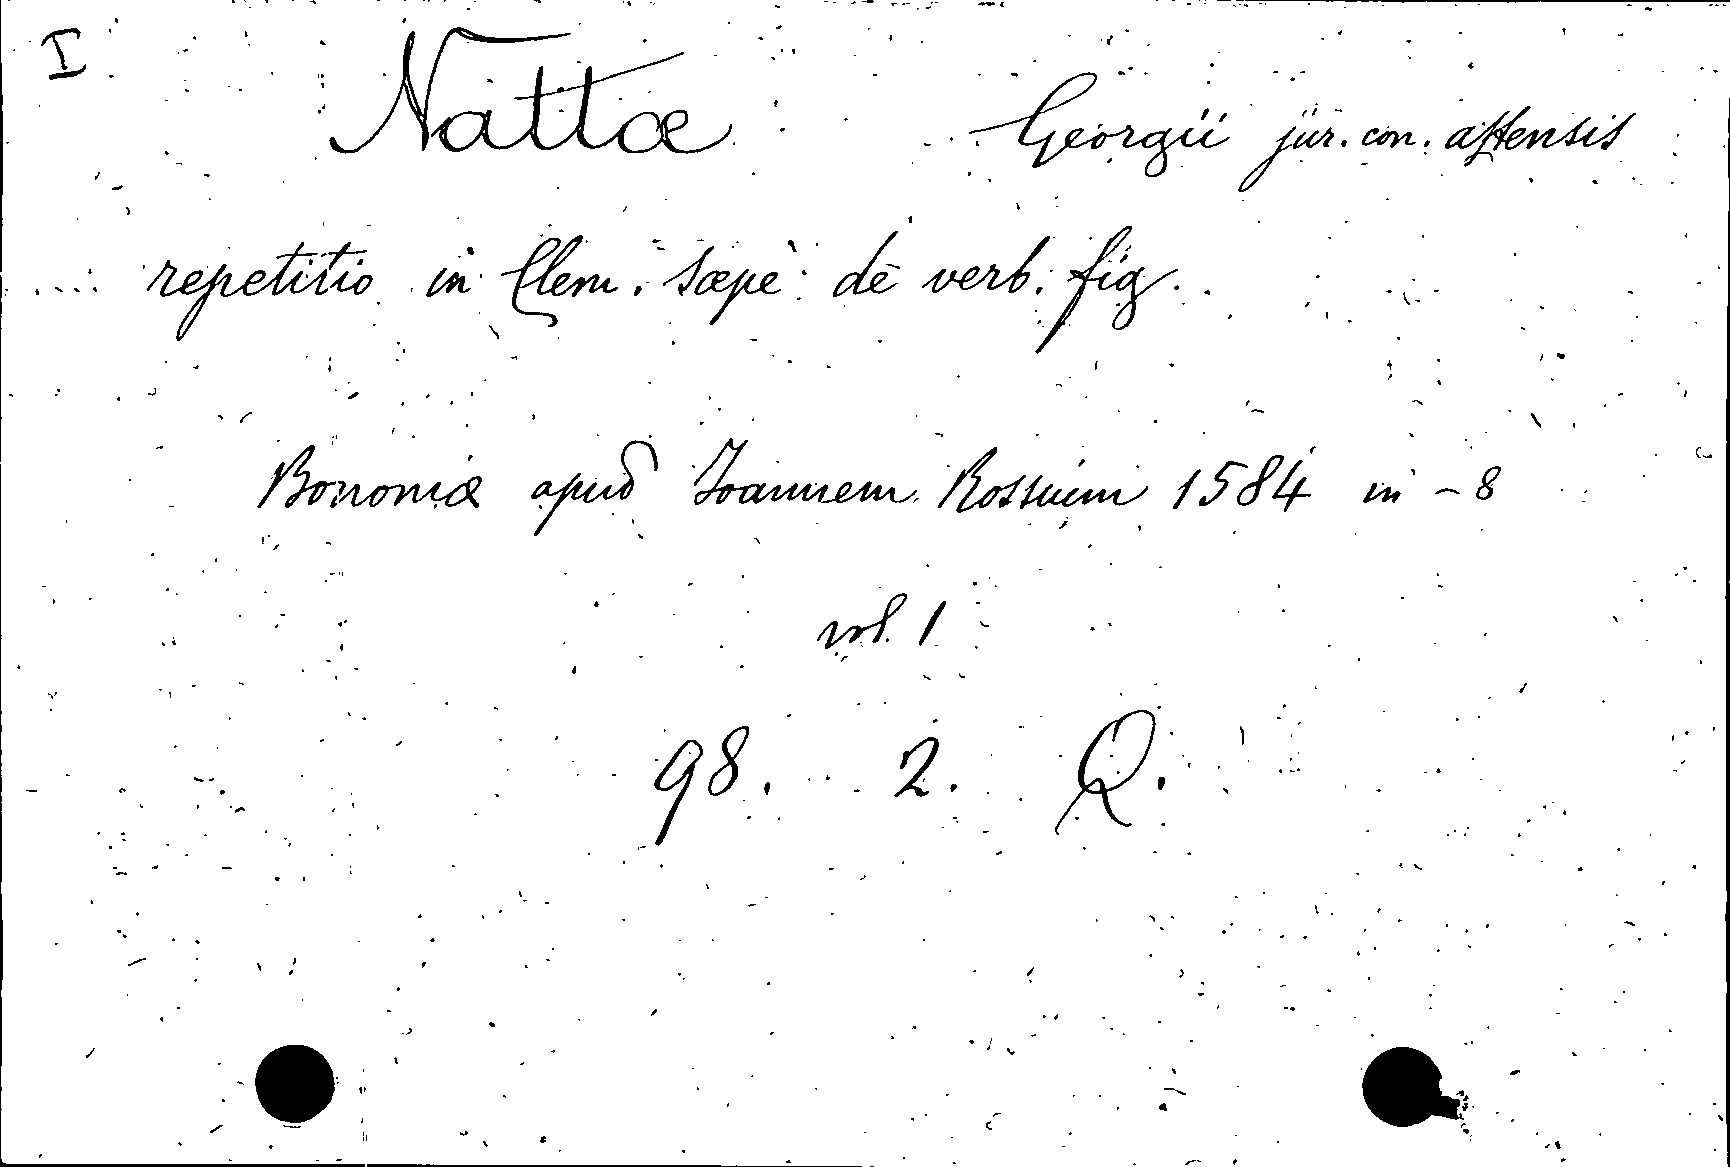 I
Nattæ Georgii jur. con. astensis
repetitio in Clem. sæpe de verb. fig.
Bononiæ apud Joannem Rossium 1584 in-8
vol. 1
98. 2. Q.